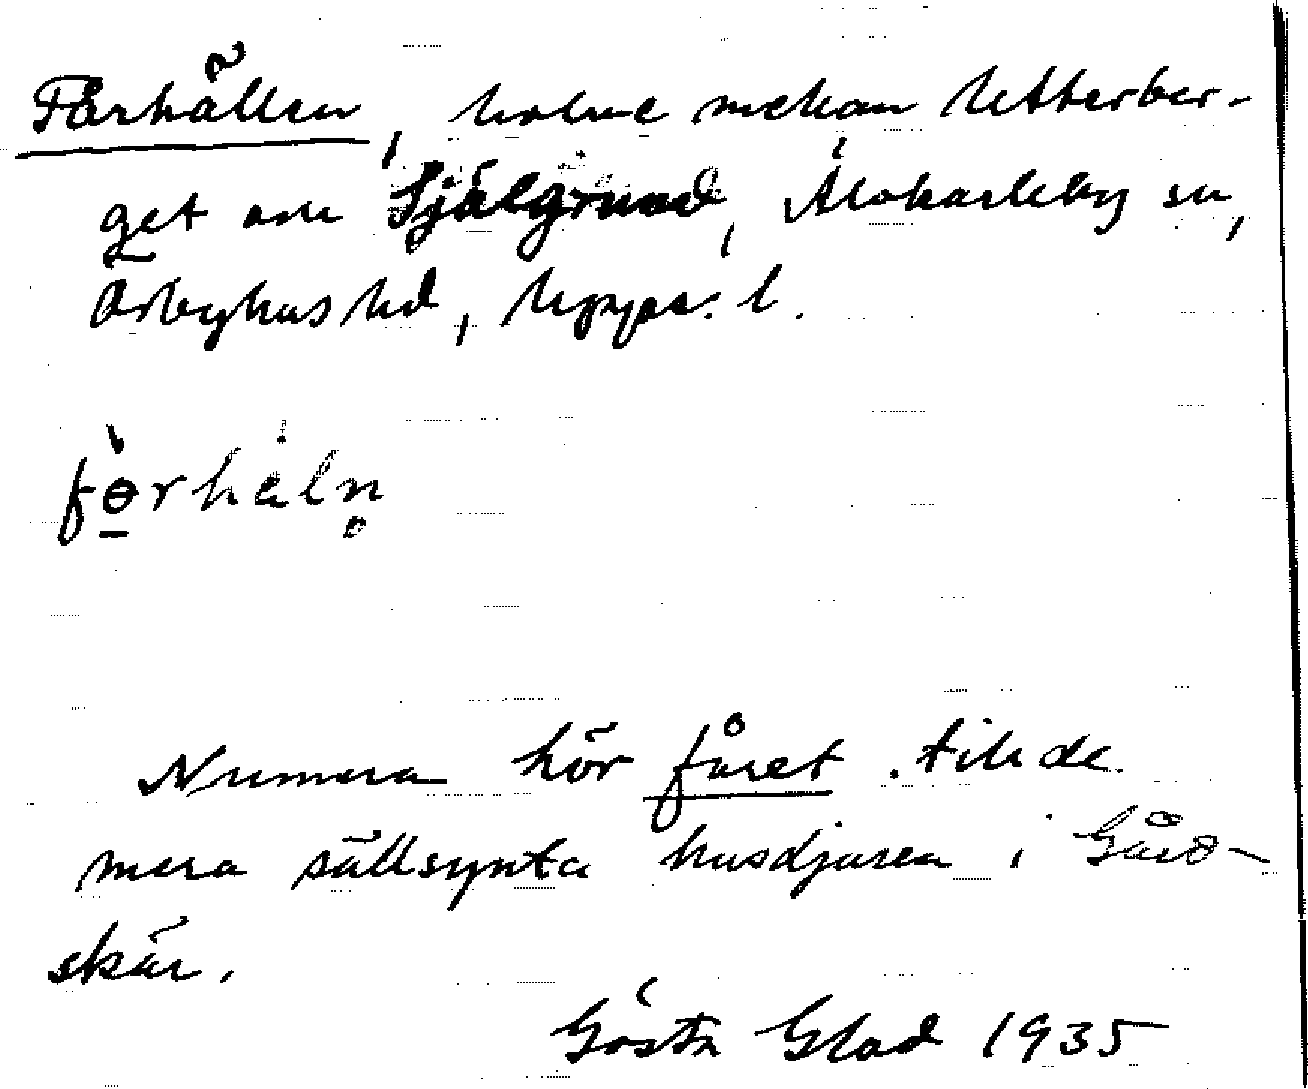 Fårhällen, holme mellan Utterber-
get och Själgrund, Älvkarleby sn,
Örbyhus hd, Uppsala l.
förhäln̥
Numera hör fåret till de
mera sällsynta husdjuren i Gård-
skär.
Gösta Glad 1935